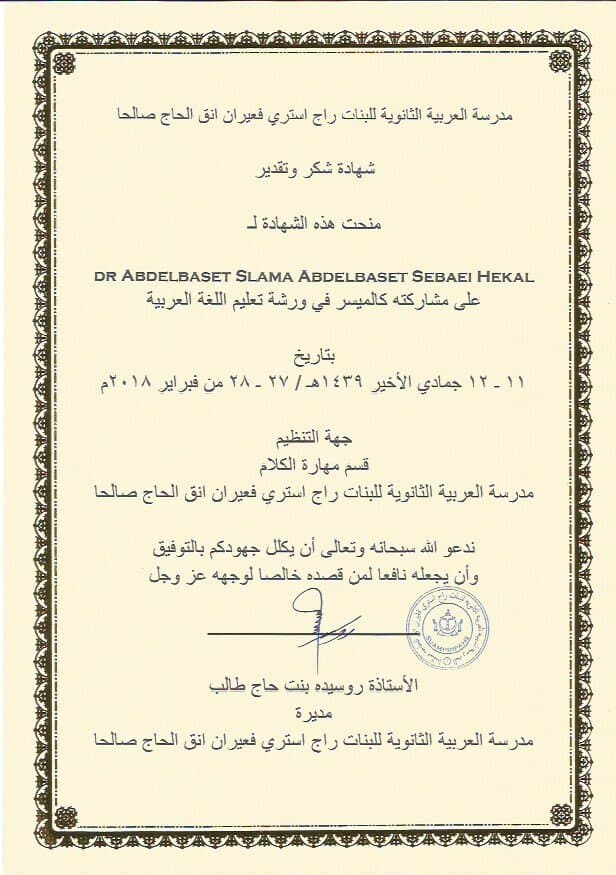 مدرسة العربية الثانوية للبنات راج استري فعيران انق الحاج صالحا
شهادة شكر وتقدير
منحت هذه الشهادة لـ
DR ABDELBASET SLAMA ABDELBASET SEBAEI HEKAL
على مشاركته كالميسر في ورشة تعليم اللغة العربية
بتاريخ
١١ - ١٢ جمادي الأخير ١٤٣٩هـ / ٢٧ - ٢٨ من فبراير ٢٠١٨م
جهة التنظيم
قسم مهارة الكلام
مدرسة العربية الثانوية للبنات راج استري فعيران انق الحاج صالحا
ندعو الله سبحانه وتعالى أن يكلل جهودكم بالتوفيق
وأن يجعله نافعا لمن قصده خالصا لوجهه عز وجل
الأستاذة روسيده بنت حاج طالب
مديرة
مدرسة العربية الثانوية للبنات راج استري فعيران انق الحاج صالحا